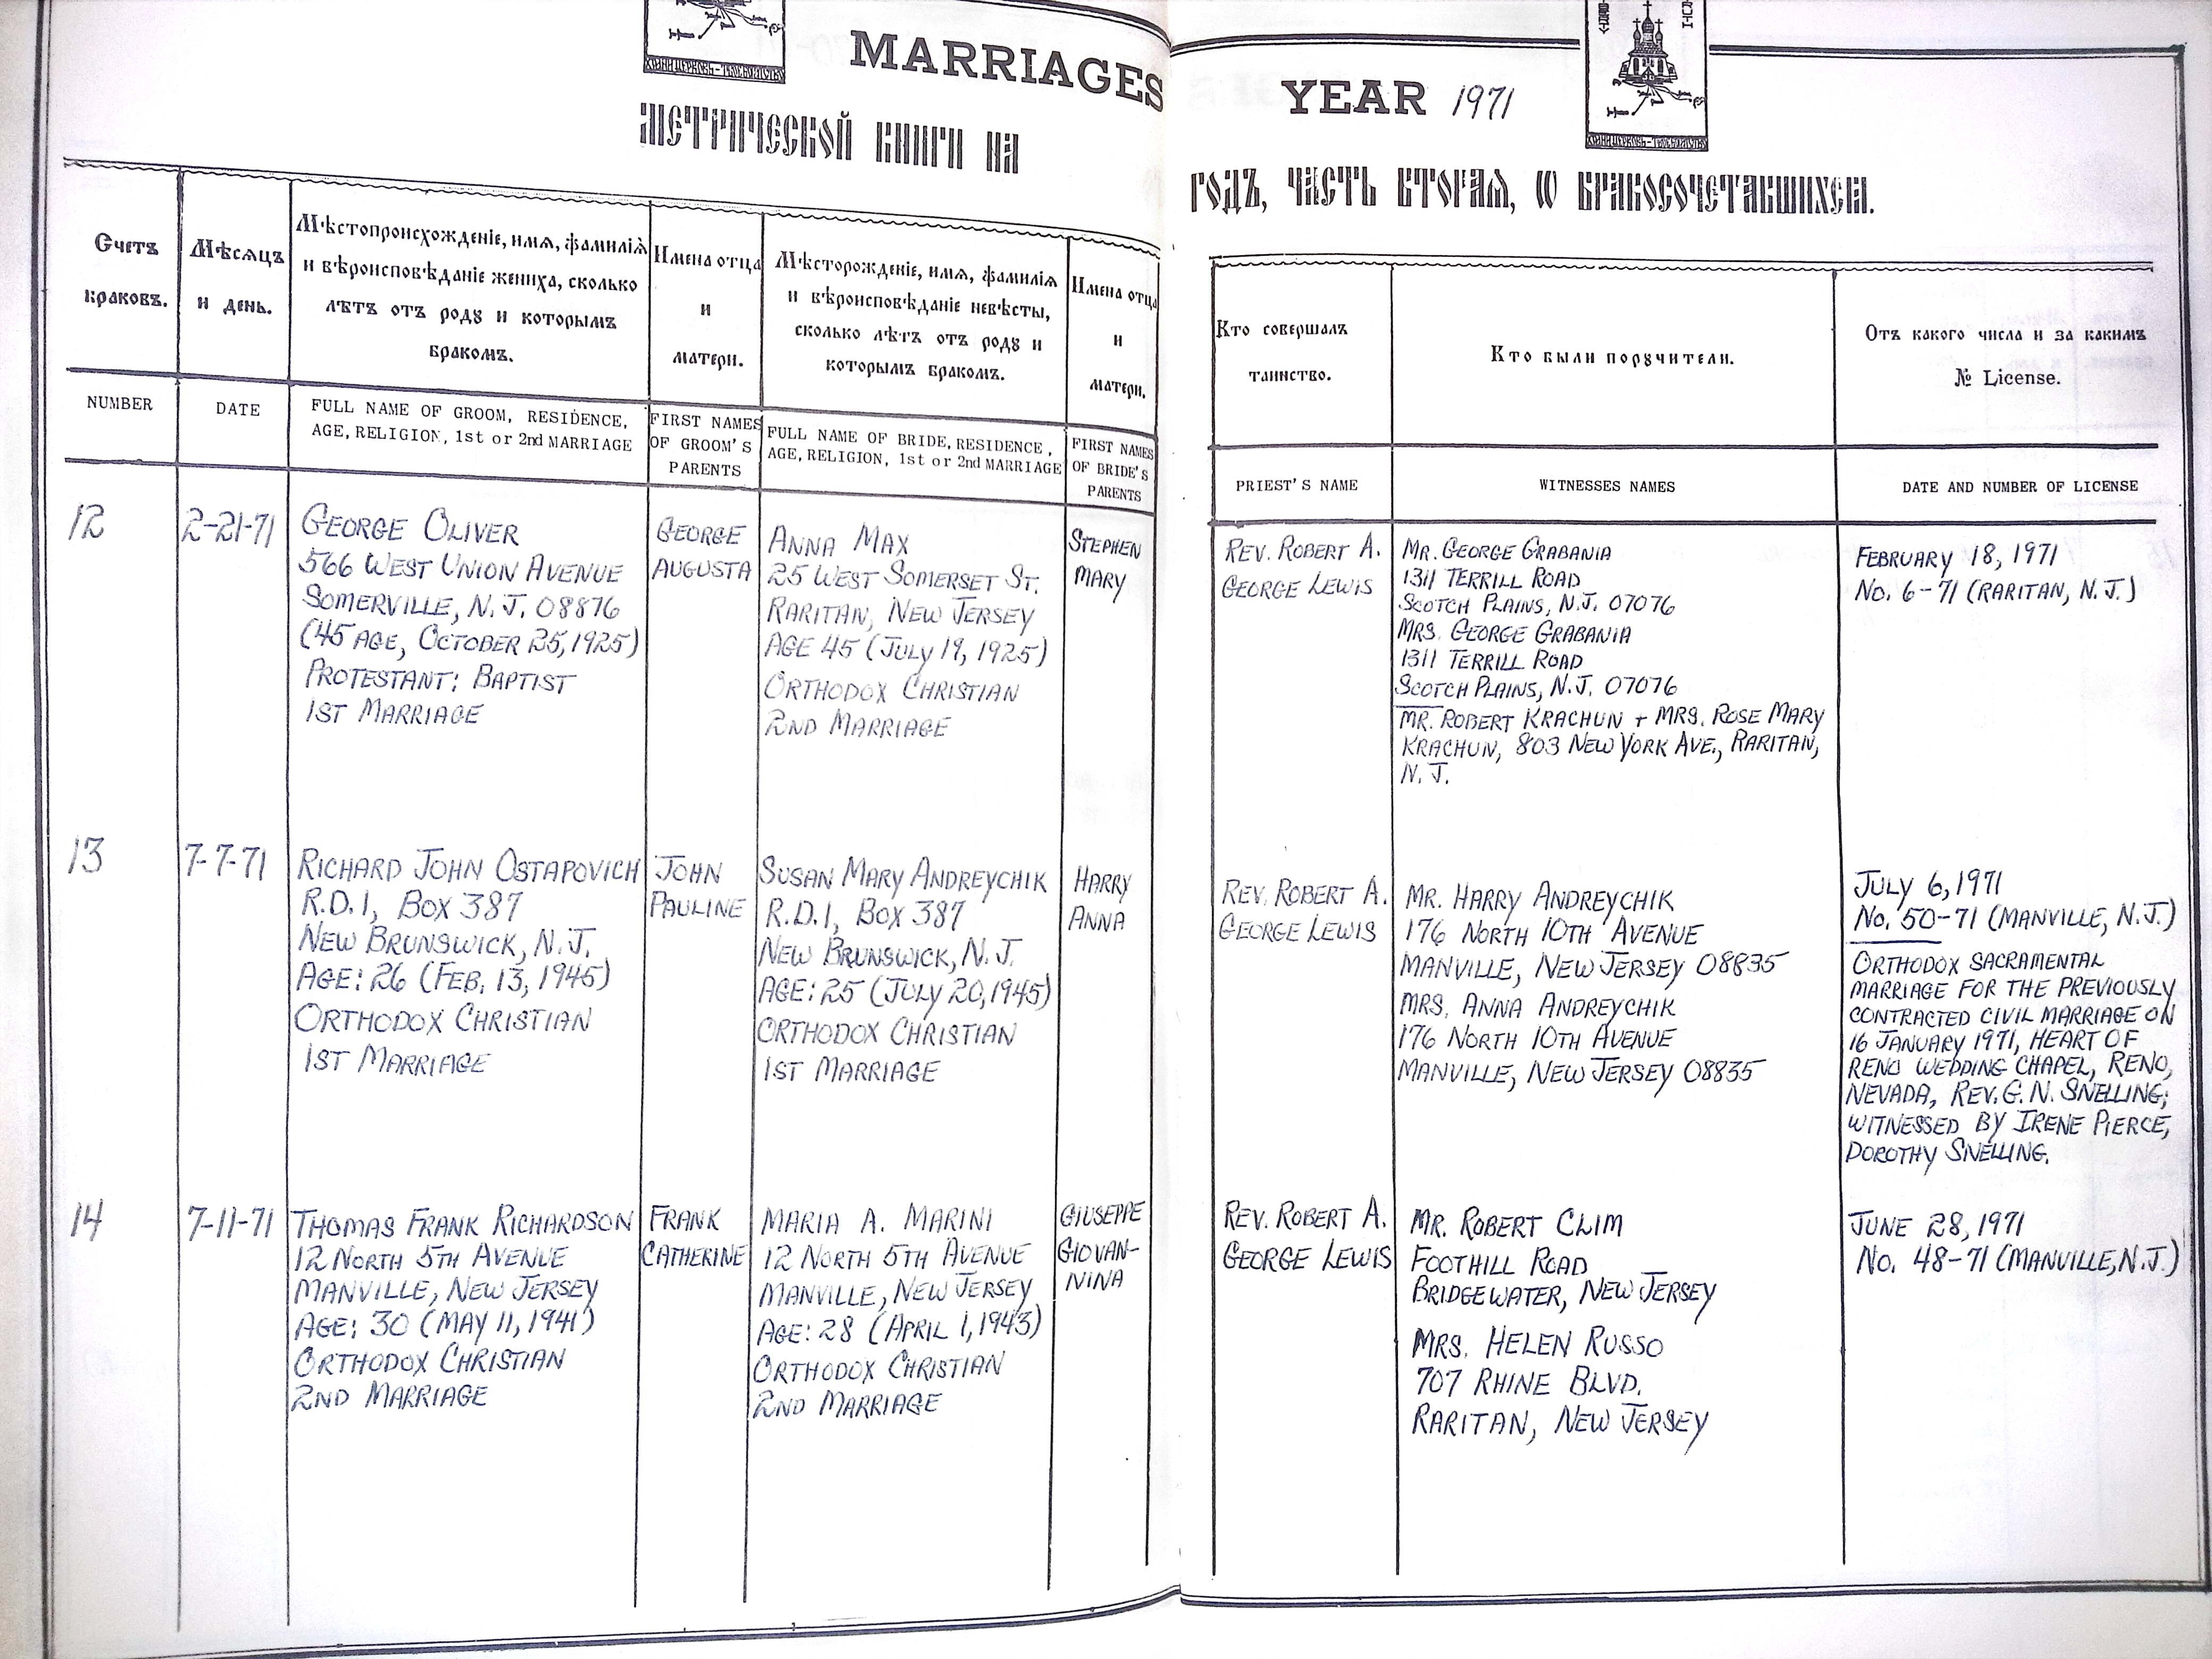 MARRIAGES
МЕТРИЧЕСКОЙ КНИГИ НА
YEAR 1971
ГОДЪ, ЧАСТЬ ВТОРАѦ, Ѡ БРАКОСОЧЕТАВШИХСѦ.
ХРАНИ ЦЕРКОВЬ-ТВОЕ БОГАТСТВО
Счетъ
браковъ.
Мѣсѧцъ
и день.
Мѣстопроисхожденіе, имѧ, фамиліѧ
и вѣроисповѣданіе жениха, сколько
лѣтъ отъ родꙋ и которымъ
бракомъ.
Имена отца
и
матери.
Мѣсторожденіе, имѧ, фамиліѧ
и вѣроисповѣданіе невѣсты,
сколько лѣтъ отъ родꙋ и
которымъ бракомъ.
Имена отца
и
матери.
Кто совершалъ
таинство.
Кто были порꙋчители.
Отъ какого числа и за какимъ
№ License.
NUMBER
DATE
FULL NAME OF GROOM, RESIDENCE,
AGE, RELIGION, 1st or 2nd MARRIAGE
FIRST NAMES
OF GROOM'S
PARENTS
FULL NAME OF BRIDE, RESIDENCE,
AGE, RELIGION, 1st or 2nd MARRIAGE
FIRST NAMES
OF BRIDE'S
PARENTS
PRIEST'S NAME
WITNESSES NAMES
DATE AND NUMBER OF LICENSE
12
2-21-71
GEORGE OLIVER
566 WEST UNION AVENUE
SOMERVILLE, N.J. 08876
(45 AGE, OCTOBER 25, 1925)
PROTESTANT: BAPTIST
1ST MARRIAGE
GEORGE
AUGUSTA
ANNA MAX
25 WEST SOMERSET ST.
RARITAN, NEW JERSEY
AGE 45 (JULY 19, 1925)
ORTHODOX CHRISTIAN
2ND MARRIAGE
STEPHEN
MARY
REV. ROBERT A.
GEORGE LEWIS
MR. GEORGE GRABANIA
1311 TERRILL ROAD
SCOTCH PLAINS, N.J. 07076
MRS. GEORGE GRABANIA
1311 TERRILL ROAD
SCOTCH PLAINS, N.J. 07076
MR. ROBERT KRACHUN + MRS. ROSE MARY
KRACHUN, 803 NEW YORK AVE., RARITAN,
N.J.
FEBRUARY 18, 1971
NO. 6-71 (RARITAN, N.J.)
13
7-7-71
RICHARD JOHN OSTAPOVICH
R.D.1, BOX 387
NEW BRUNSWICK, N.J.
AGE: 26 (FEB. 13, 1945)
ORTHODOX CHRISTIAN
1ST MARRIAGE
JOHN
PAULINE
SUSAN MARY ANDREYCHIK
R.D.1, BOX 387
NEW BRUNSWICK, N.J.
AGE: 25 (JULY 20, 1945)
ORTHODOX CHRISTIAN
1ST MARRIAGE
HARRY
ANNA
REV. ROBERT A.
GEORGE LEWIS
MR. HARRY ANDREYCHIK
176 NORTH 10TH AVENUE
MANVILLE, NEW JERSEY 08835
MRS. ANNA ANDREYCHIK
176 NORTH 10TH AVENUE
MANVILLE, NEW JERSEY 08835
JULY 6, 1971
NO. 50-71 (MANVILLE, N.J.)
ORTHODOX SACRAMENTAL
MARRIAGE FOR THE PREVIOUSLY
CONTRACTED CIVIL MARRIAGE ON
16 JANUARY 1971, HEART OF
RENO WEDDING CHAPEL, RENO,
NEVADA, REV. G.N. SNELLING;
WITNESSED BY IRENE PIERCE,
DOROTHY SNELLING.
14
7-11-71
THOMAS FRANK RICHARDSON
12 NORTH 5TH AVENUE
MANVILLE, NEW JERSEY
AGE: 30 (MAY 11, 1941)
ORTHODOX CHRISTIAN
2ND MARRIAGE
FRANK
CATHERINE
MARIA A. MARINI
12 NORTH 5TH AVENUE
MANVILLE, NEW JERSEY
AGE: 28 (APRIL 1, 1943)
ORTHODOX CHRISTIAN
2ND MARRIAGE
GIUSEPPE
GIOVAN-
NINA
REV. ROBERT A.
GEORGE LEWIS
MR. ROBERT CLIM
FOOTHILL ROAD
BRIDGEWATER, NEW JERSEY
MRS. HELEN RUSSO
707 RHINE BLVD.
RARITAN, NEW JERSEY
JUNE 28, 1971
NO. 48-71 (MANVILLE, N.J.)